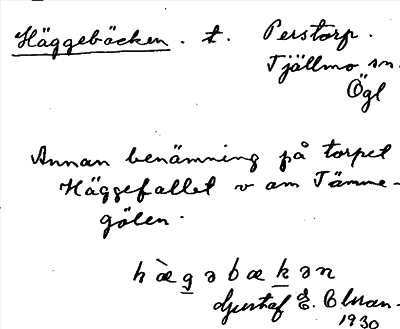 Häggebäcken. t. Perstorp.
Tjällmo sn.
Ögl
Annan benämning på torpet
Häggefallet v om Tämme-
gölen.
hæ̀gəbækən
Gustaf E. Olsson.
1930